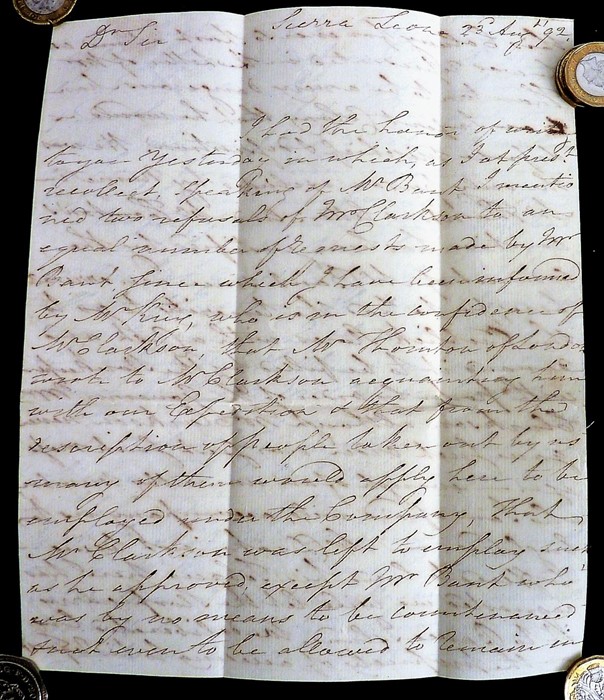 Sierra Leona 23d Augt 92
Dr Sir
I had the honor of
to you Yesterday in which, as I at prest
recollect, speaking of Mr Bant I mentio
ned two refusals of Mr Clarkson to an
equal number of requests made by Mr
Bant since which I have been informed
by Mr King, who is in the confidence of
Mr Clarkson, that Mr Thornton of London
wrote to Mr Clarkson acquainting him
with our Expedition & that from the
description of people taken out by us
many of them would apply here to be
employed under the Company, that
Mr Clarkson was left to employ such
as he approved, except Mr Bant who
was by no means to be countenanced
nor even to be allowed to remain in